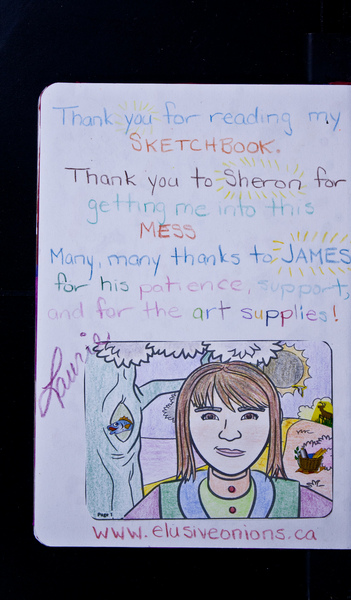 Thank you for reading my
SKETCHBOOK.
Thank you to Sheron for
getting me into this
MESS
Many, many thanks to JAMES
for his patience, support,
and for the art supplies!
Laurie
Page 1
www.elusiveonions.ca